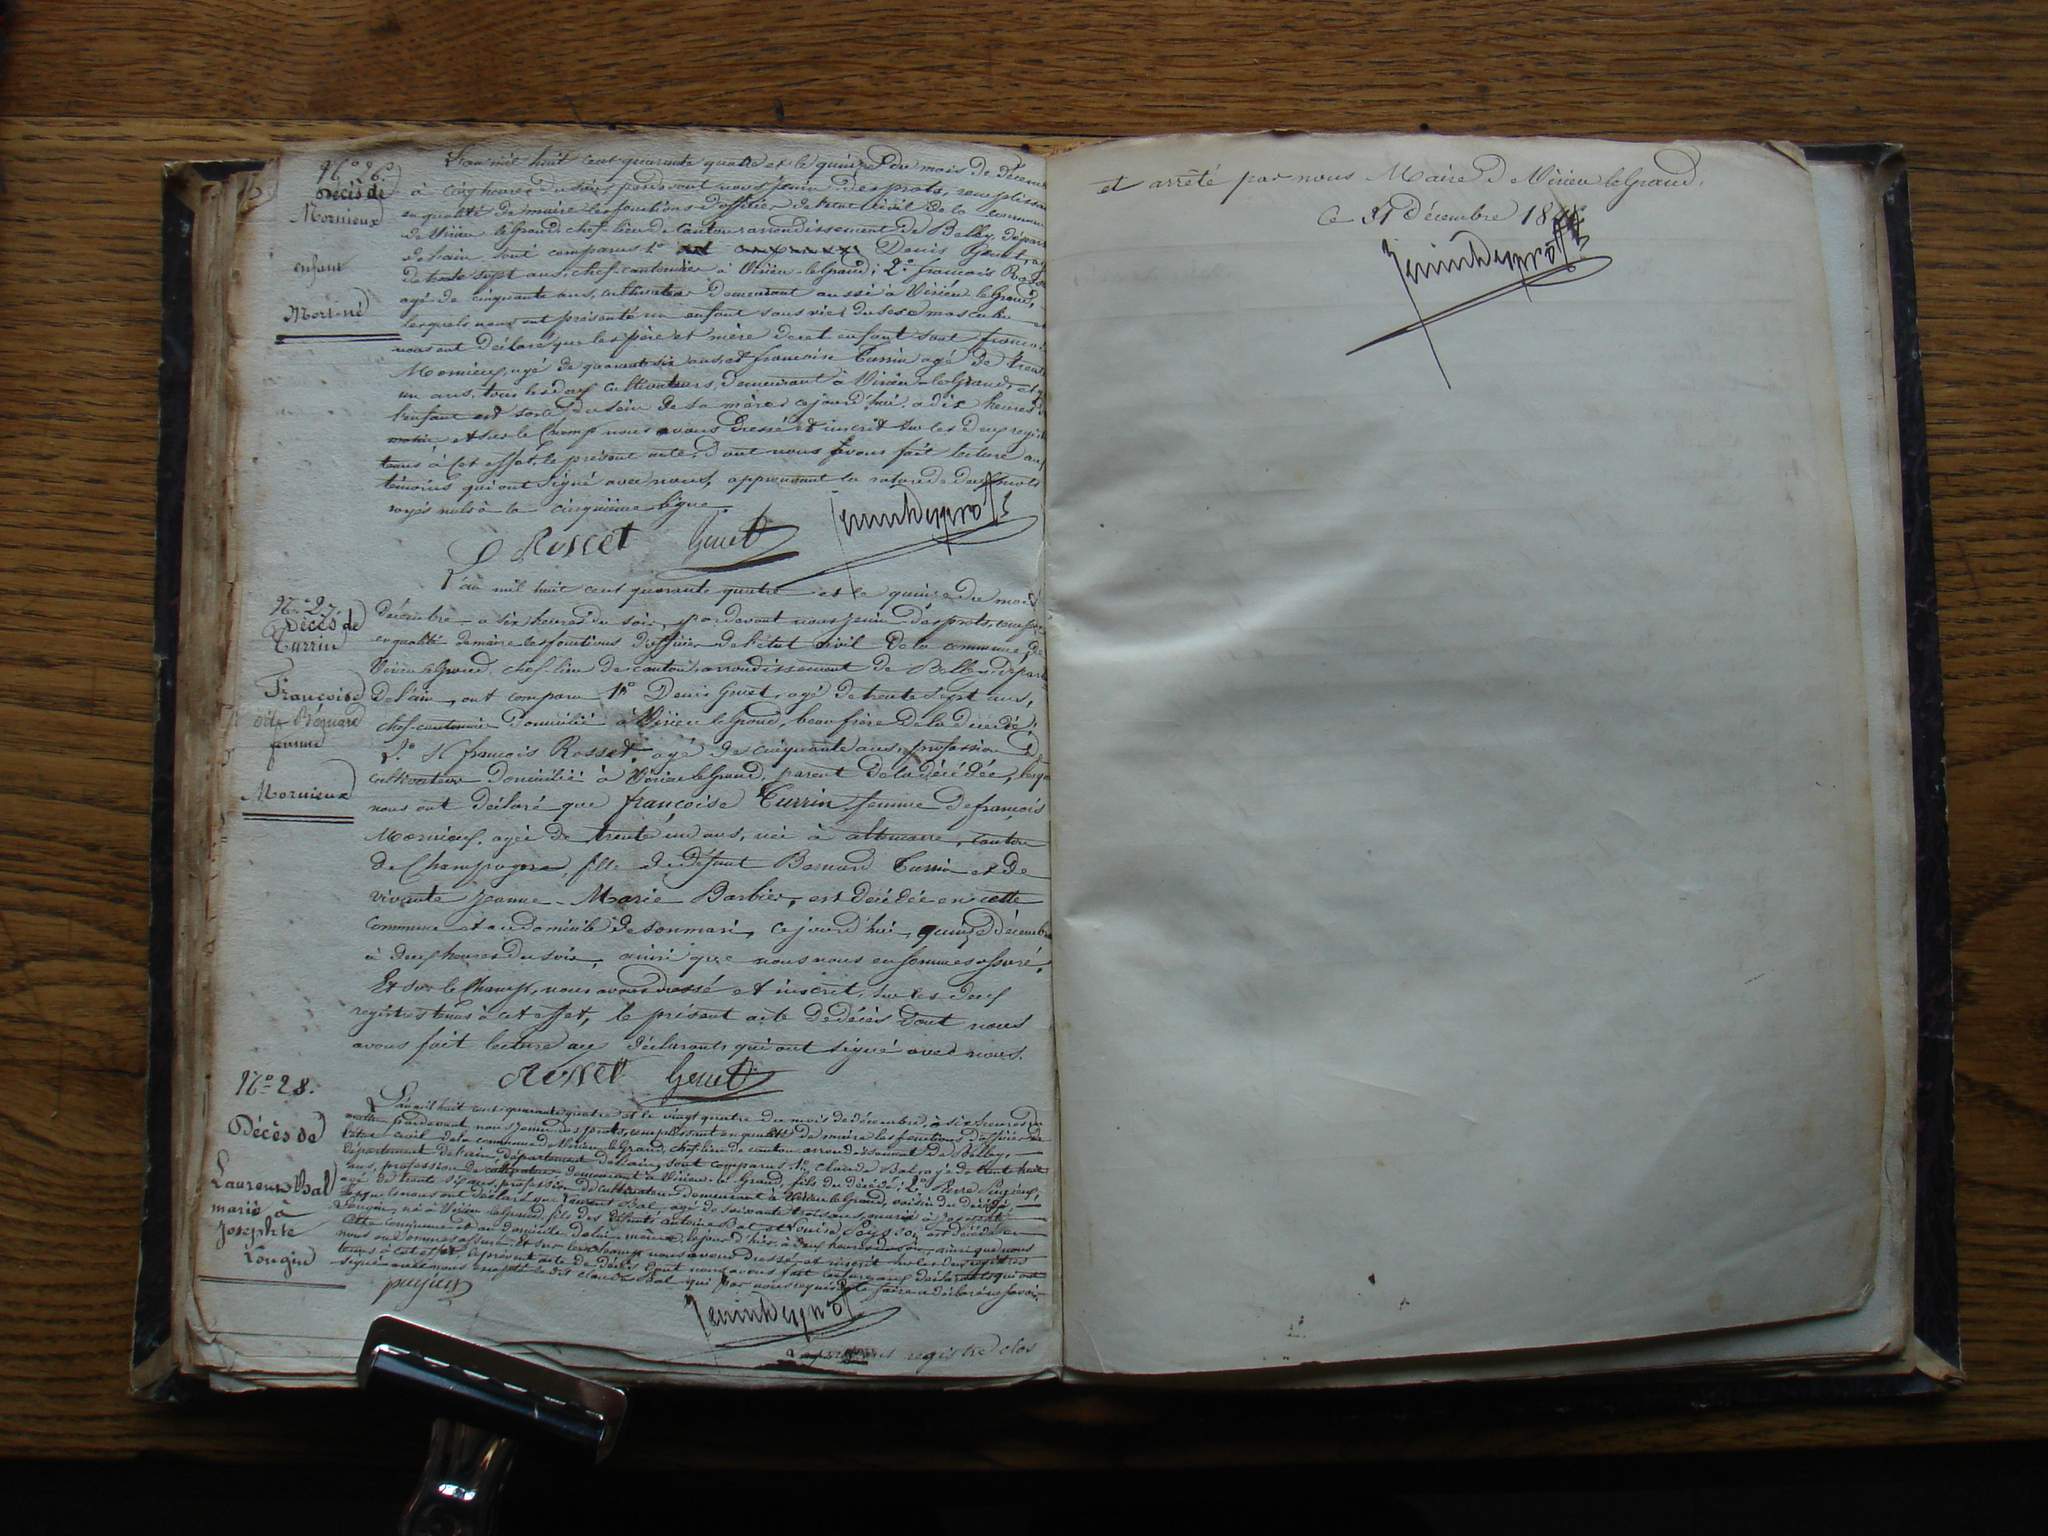 N° 26.
Décès de
Mornieux
enfant
Mort-né
L'an mil huit cent quarante quatre et le quinze du mois de décem
à cinq heures du soir, pardevant nous Jenin Desprots, remplissa
en qualité de maire les fonctions d'officier de l'état civil de la commune
de Virieu le Grand, chef-lieu de canton arrondissement de Belley, dépar
de l'ain, sont comparus 1° Denis Genet, a
de trente sept ans, chef-cantonnier à Virieu-le-grand; 2° françois Ross
agé de cinquante ans, cultivateur demeurant aussi à Virieu le Grand,
lesquels nous ont présenté un enfant sans vie, du sexe masculin et
nous ont déclaré que les père et mère de cet enfant sont françoi
Mornieux, agé de quarante six ans, et françoise Turrin agé de trente
un ans, tous les deux cultivateurs, demeurant à Virieu-le-Grand, et q
l'enfant est sorti du sein de sa mère cejourd'hui, à dix heures d
matin, et sur le champ nous avons dressé et inscrit sur les deux regist
tenus à cet effet, le présent acte, dont nous avons fait lecture aux
témoins qui ont signé avec nous, approuvant la rature de deux mots
rayés nuls à la cinquième ligne.
F Rosset Genet Jenin Desprots
N° 27.
Décès de
Turrin
Françoise
fille Bernard
femme
Mornieux
L'an mil huit cent quarante quatre et le quinze du mois
décembre à six heures du soir, pardevant nous Jenin Desprots, remplis
en qualité de maire les fonctions d'officier de l'état civil de la commune de
Virieu le Grand, chef-lieu de canton, arrondissement de Belley, départ
de l'ain, ont comparu 1° Denis Genet, agé de trente sept ans,
chef-cantonnier domicilié à Virieu le Grand, beau frère de la décédée;
2° françois Rosset, agé de cinquante ans, profession de
cultivateur domicilié à Virieu le Grand, parent de la décédée, lesq
nous ont déclaré que françoise Turrin femme de françois
Mornieux, agée de trente un ans, née à altemarre, canton
de Champagne, fille de défunt Bernard Turrin et de
vivante Jeanne-Marie Barbier, est décédée en cette
commune et au domicile de son mari, cejourd'hui, quinze décembre
à deux heures du soir, ainsi que nous nous en sommes assuré.
Et sur le champ, nous avons dressé et inscrit, sur les deux
registres tenus à cet effet, le présent acte de décès dont nous
avons fait lecture aux déclarants qui ont signé avec nous.
Rosset Genet
N° 28.
Décès de
Laurent Bal
marié à
Josephte
Longin
L'an mil huit cent quarante quatre et le vingt quatre du mois de décembre, à six heures du
matin pardevant nous Jenin Desprots, remplissant en qualité de maire les fonctions d'officier de
l'état civil de la commune de Virieu le Grand, chef-lieu de canton arrondissement de Belley,
département de l'ain, sont comparus 1° Claude Bal, agé de trente huit
ans, profession de cultivateur demeurant à Virieu le Grand, fils du décédé; 2° Pierre Pugieux,
agé de trente six ans, profession de cultivateur demeurant à Virieu le Grand, voisin du décédé,
lesquels nous ont déclaré que Laurent Bal, agé de soixante trois ans, marié à Josephte
Longin, né à Virieu le Grand, fils des défunts Antoine Bal et Louise, est décédé en
cette commune et au domicile de lui même, cejourd'hui, à deux heures du soir, ainsi que nous
nous en sommes assuré. Et sur le champ nous avons dressé et inscrit sur les deux registres
tenus à cet effet, le présent acte de décès dont nous avons fait lecture aux déclarants qui ont
signé avec nous excepté le dit Claude Bal qui par nous requis de le faire a déclaré ne savoir.
pugieux
Jenin Desprots
Le présent registre clos
et arrêté par nous Maire de Virieu le Grand,
Ce 31 Décembre 1844
Jenin Desprots